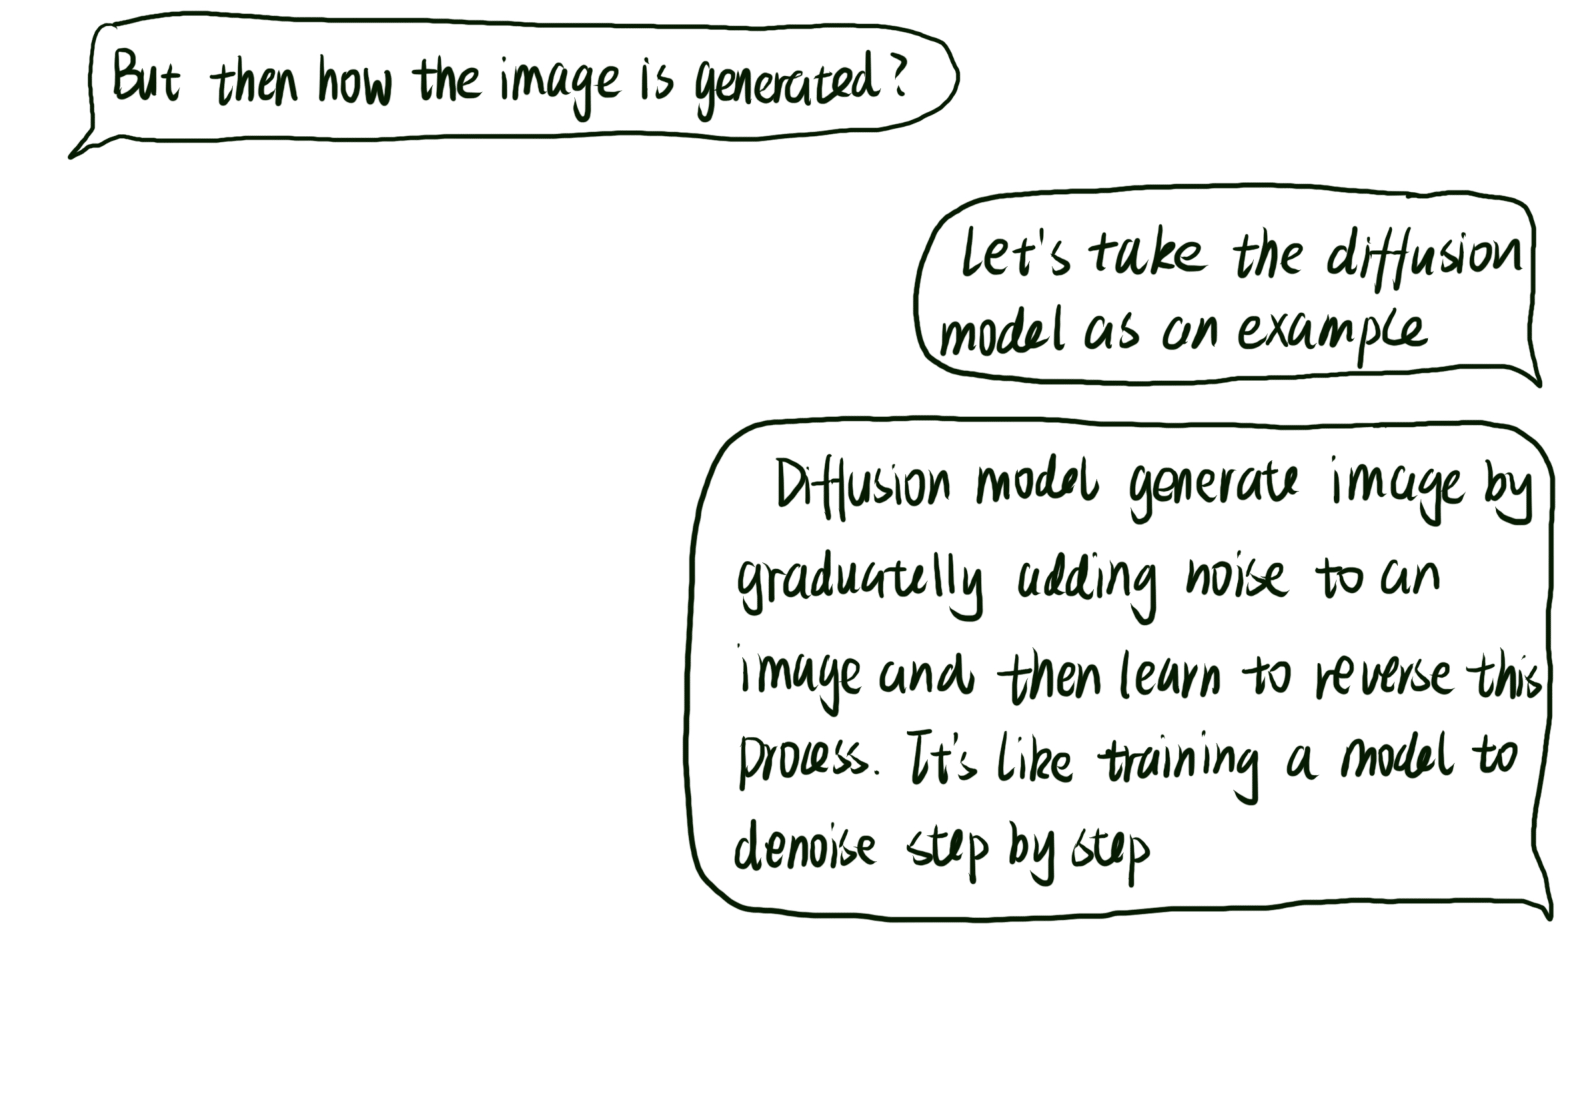 But then how the image is generated?
Let's take the diffusion
model as an example
Diffusion model generate image by
graduatelly adding noise to an
image and then learn to reverse this
process. It's like training a model to
denoise step by step